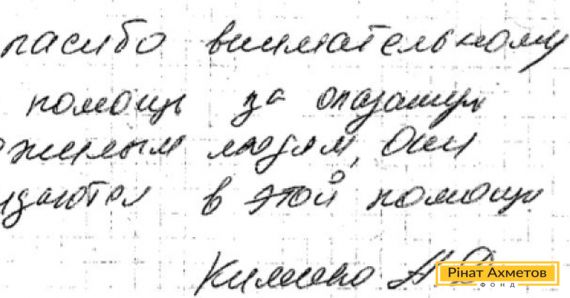 пасибо внимательному
помощь за оказаную
ожилым людям, Они
ндаются в этой помощи
Рінат Ахметов
ФОНД